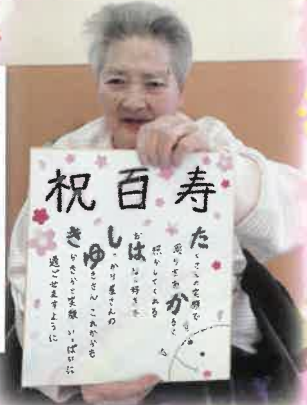 祝百寿
たくさんの笑顔で
周りをあかるく
照らしてくれる
おはなし好きな
しっかり屋さんの
ゆきさん これからも
きらきらと笑顔 いっぱいに
過ごせますように